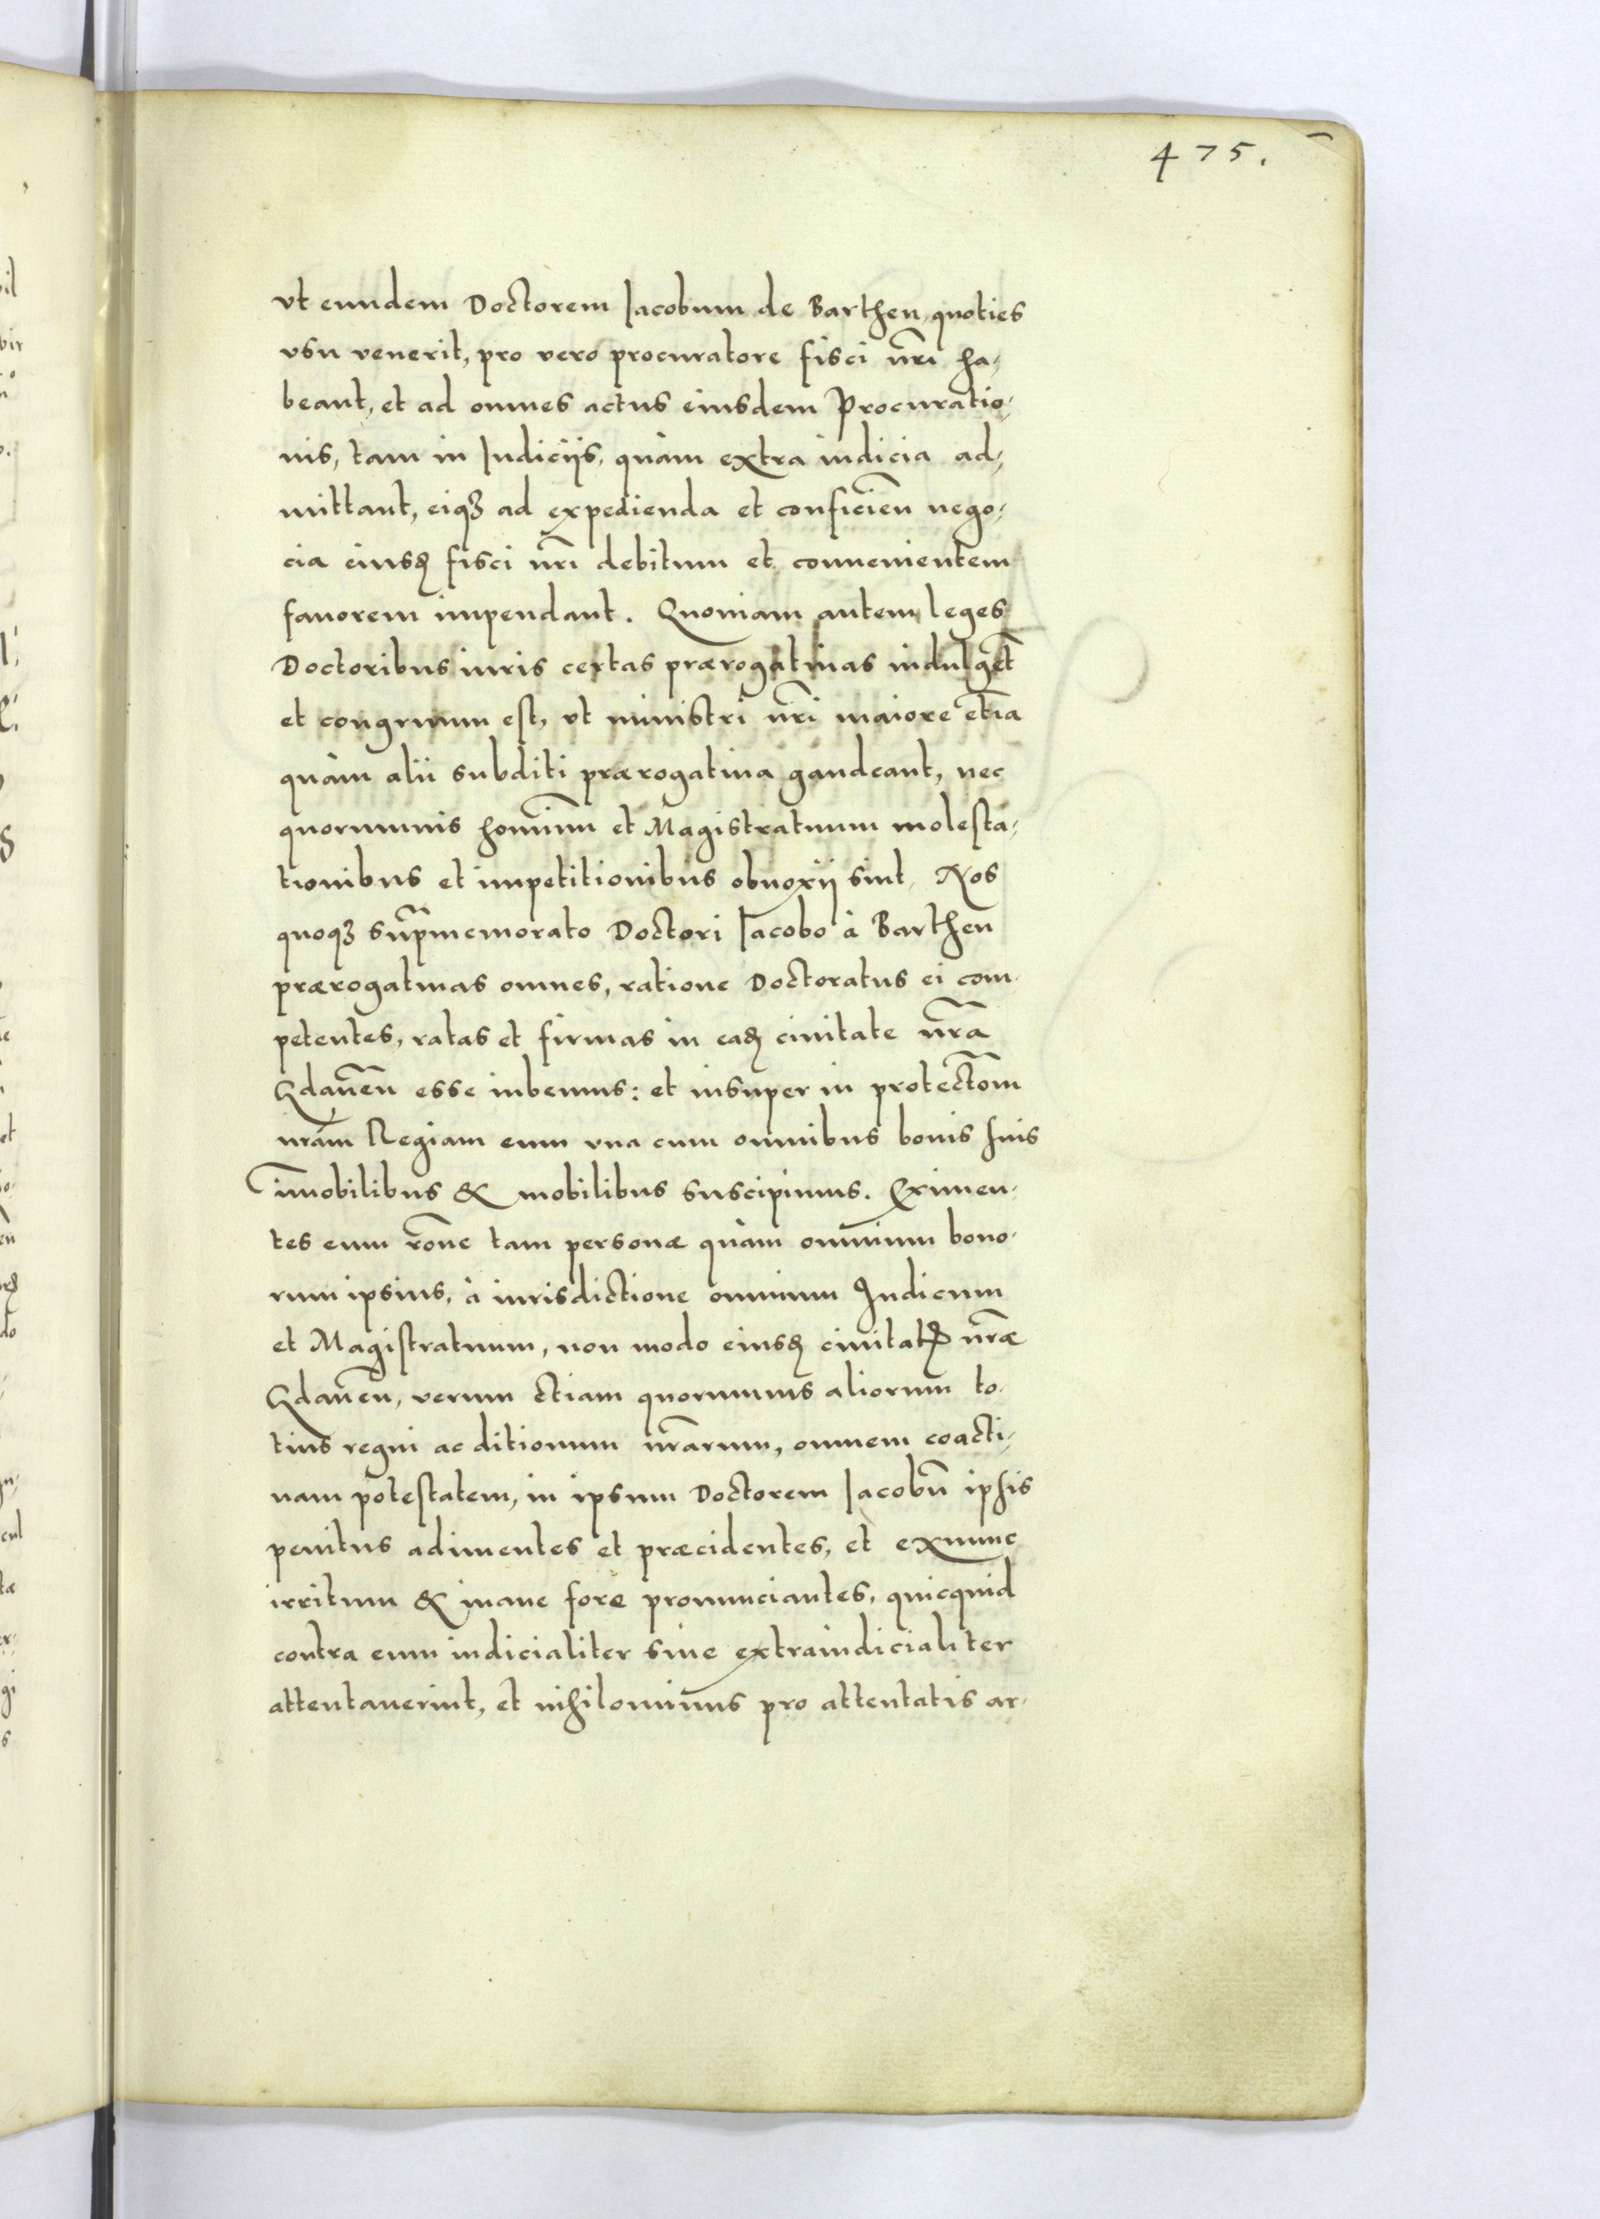 475.
vt eundem Doctorem Iacobum de Barthen, quoties
vsu venerit, pro vero procuratore fisci nr̃i ha,
beant, et ad omnes actus eiusdem Procuratio,
nis, tam in Iudicijs, quàm extra iudicia ad,
mittant, eiqꝫ ad expedienda et conficien̄ nego,
cia eiusꝺ fisci nr̃i debitum et conuenientem
fauorem impendant. Quoniam autem leges
Doctoribus iuris certas prærogatiuas indulgẽt
et congruum est, vt ministri nr̃i maiore etiã
quàm alii subditi prærogatiua gaudeant, nec
quorumuis hominũ et Magistratuum molesta,
tionibus et impetitionibus obnoxij sint, Nos
quoqꝫ sup̃memorato Doctori Iacobo à Barthen
prærogatiuas omnes, ratione Doctoratus ei com,
petentes, ratas et firmas in eaꝺ ciuitate nr̃a
Gdanen̄ esse iubemus: et insuper in protectõm
nr̃am Regiam eum vna cum omnibus bonis suis
im̃obilibus & mobilibus suscipimus. Eximen,
tes eum rõne tam personæ quàm omnium bono,
rum ipsius, à iurisdictione omnium Iudicum
et Magistratuum, non modo eiusꝺ ciuitatꝭ nr̃æ
Gdanen̄, verum etiam quorumuis aliorum to,
tius regni ac ditionum nr̃arum, omnem coacti,
uam potestatem, in ipsum Doctorem Iacobũ ipsis
penitus adimentes et præcidentes, et exnunc
irritum & inane fore pronunciantes, quicquid
contra eum iudicialiter siue extraiudicialiter
attentauerint, et nihilominus pro attentatis ar,